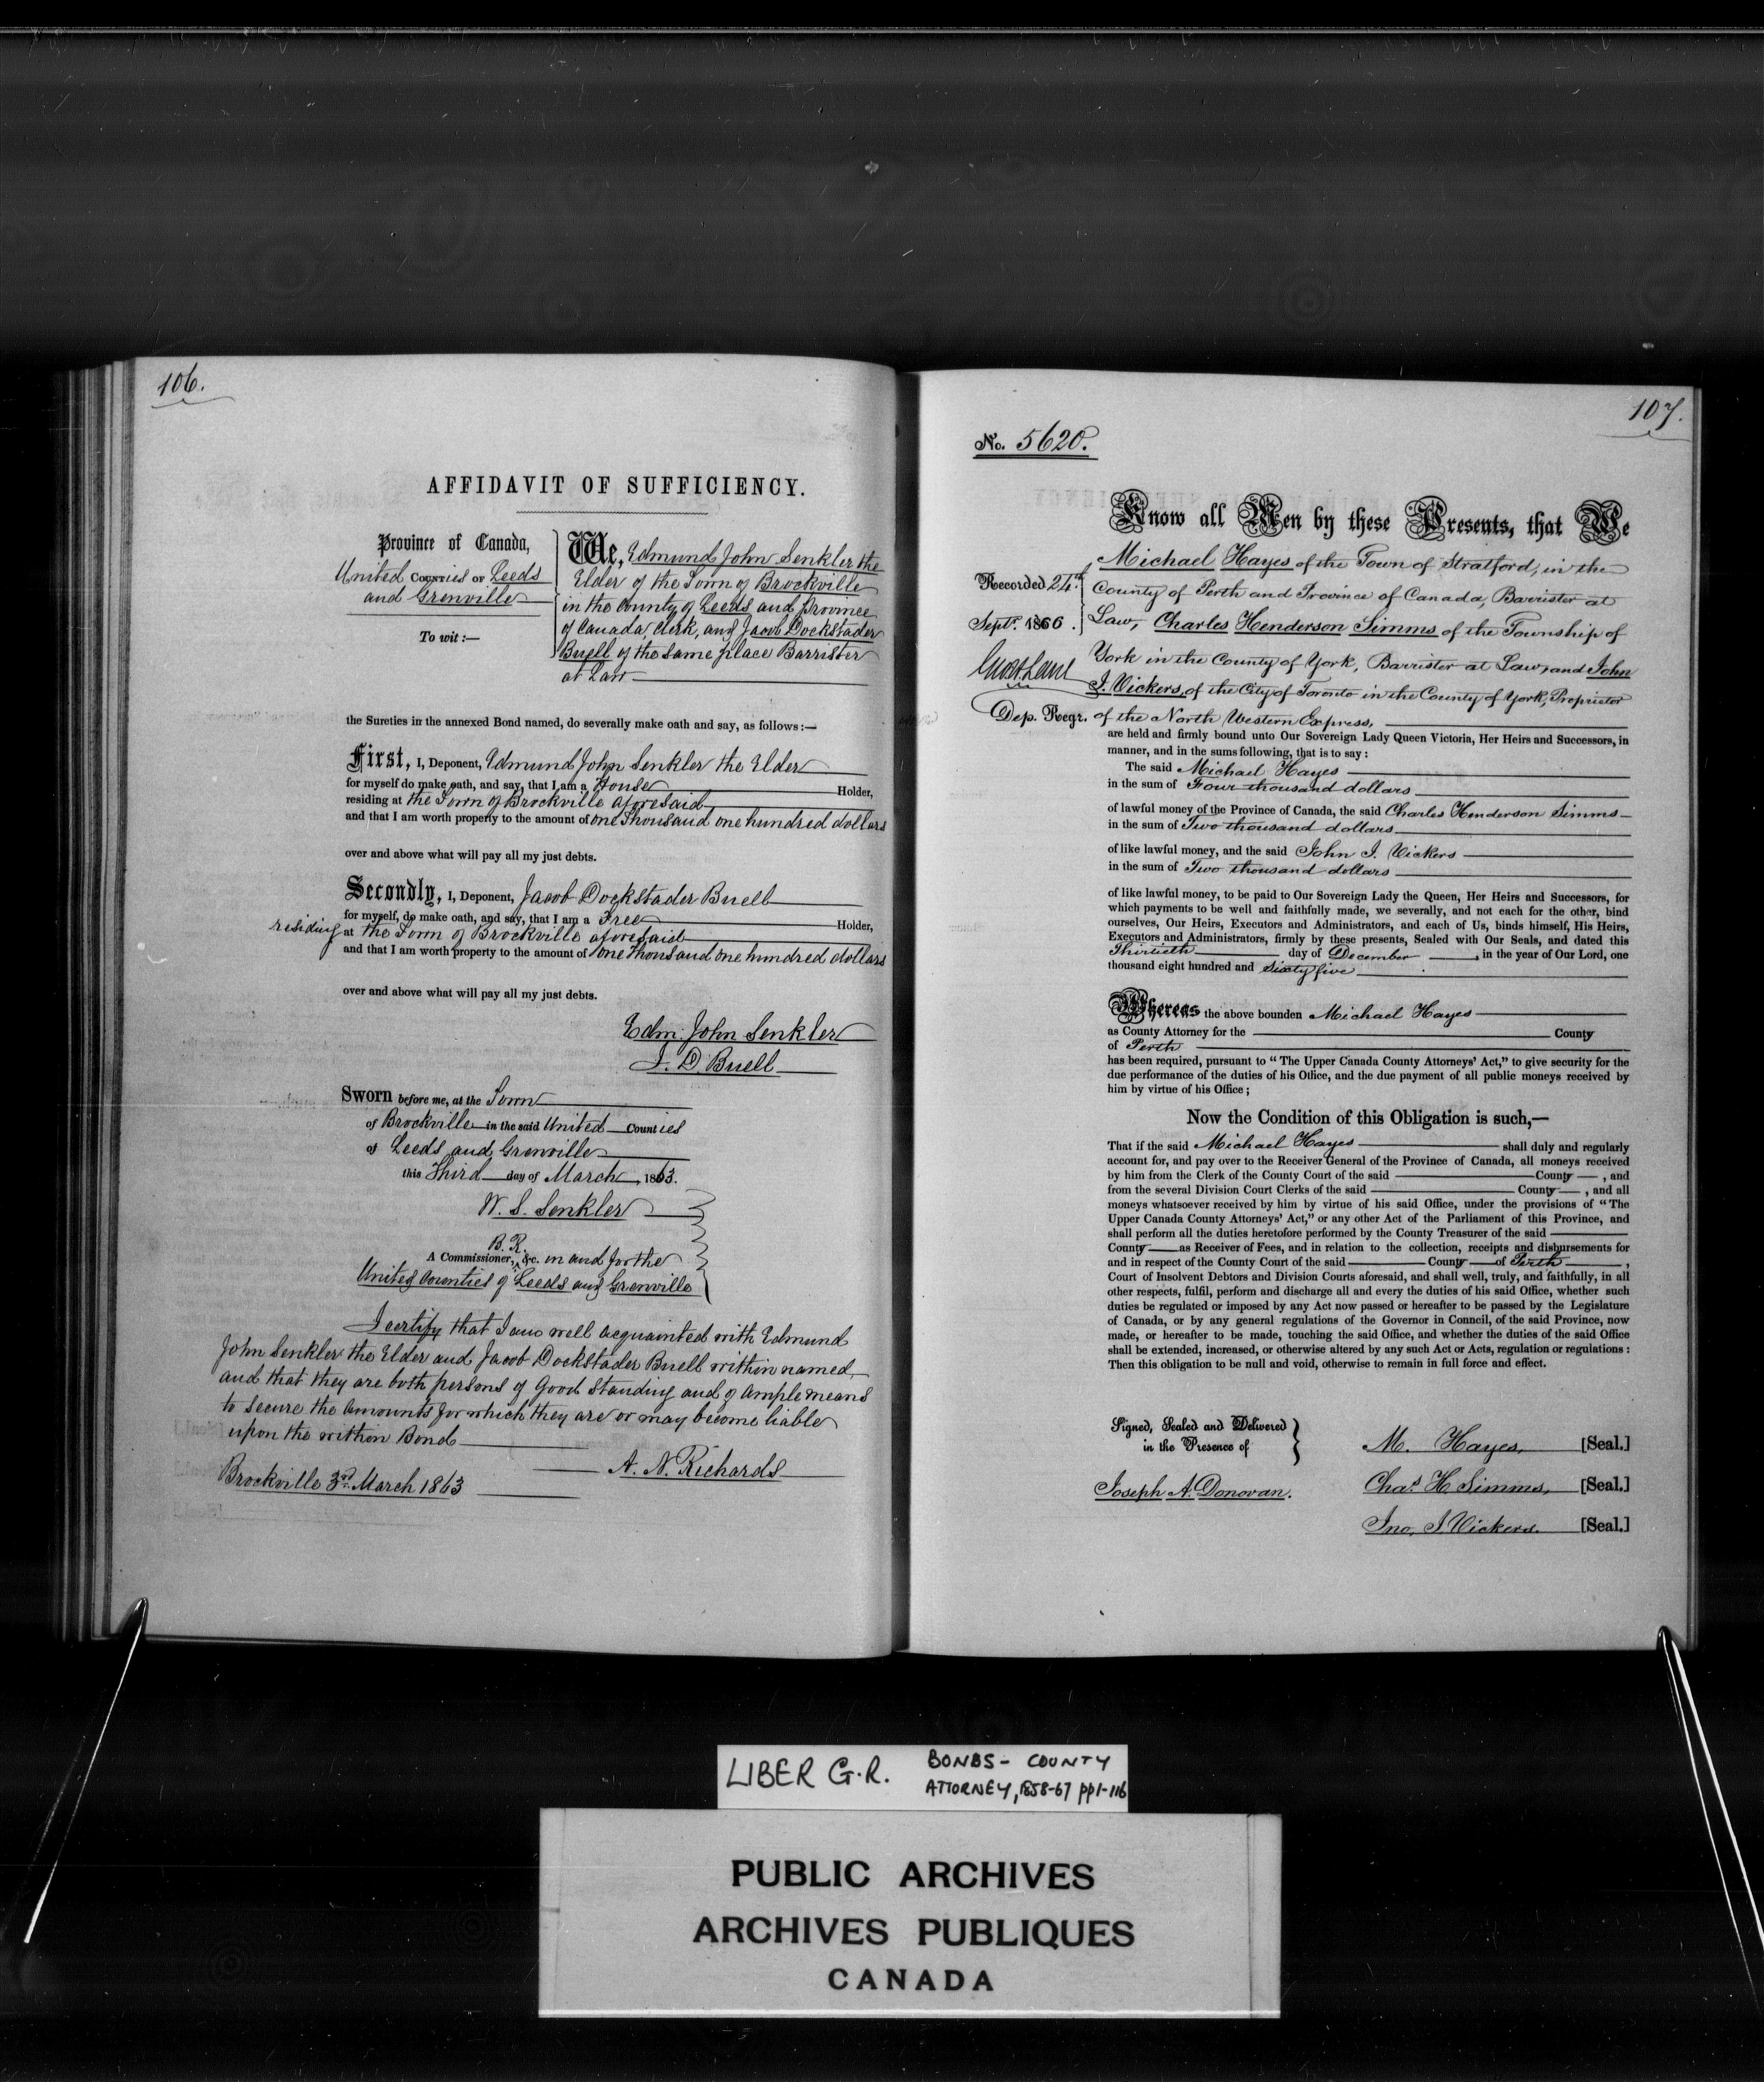 106.
AFFIDAVIT OF SUFFICIENCY.
Province of Canada,
United COUNTIES OF Leeds
and Grenville
To wit :—
We, Edmund John Senkler the
Elder of the Town of Brockville
in the County of Leeds and Province
of Canada, Clerk, and Jacob Dockstader
Buell of the same place Barrister
at Law
the Sureties in the annexed Bond named, do severally make oath and say, as follows :—
First, I, Deponent, Edmund John Senkler the Elder
for myself do make oath, and say, that I am a House Holder,
residing at the Town of Brockville aforesaid
and that I am worth property to the amount of One Thousand one hundred dollars
over and above what will pay all my just debts.
Secondly, I, Deponent, Jacob Dockstader Buell
for myself, do make oath, and say, that I am a Free Holder,
residing at the Town of Brockville aforesaid
and that I am worth property to the amount of One Thousand one hundred dollars
over and above what will pay all my just debts.
Edm: John Senkler
J. D. Buell
Sworn before me, at the Town
of Brockville in the said United Counties
of Leeds and Grenville
this Third day of March, 1863.
W. S. Senkler
B. R.
A Commissioner, &c. in and for the
United Counties of Leeds and Grenville
I certify that I am well acquainted with Edmund
John Senkler the Elder and Jacob Dockstader Buell within named,
and that they are both persons of Good Standing and of Ample means
to Secure the Amounts for which they are or may become liable
upon the within Bond
A. N. Richards
Brockville 3rd. March 1863
107.
No. 5620.
Know all Men by these Presents, that We
Michael Hayes of the Town of Stratford, in the
County of Perth and Province of Canada, Barrister at
Law, Charles Henderson Simms of the Township of
York in the County of York, Barrister at Law, and John
J. Vickers of the City of Toronto in the County of York, Proprietor
of the North Western Express,
Recorded 24th
Sept. 1866.
Dep. Regr.
are held and firmly bound unto Our Sovereign Lady Queen Victoria, Her Heirs and Successors, in
manner, and in the sums following, that is to say :
The said Michael Hayes
in the sum of Four thousand dollars
of lawful money of the Province of Canada, the said Charles Henderson Simms
in the sum of Two thousand dollars
of like lawful money, and the said John J. Vickers
in the sum of Two thousand dollars
of like lawful money, to be paid to Our Sovereign Lady the Queen, Her Heirs and Successors, for
which payments to be well and faithfully made, we severally, and not each for the other, bind
ourselves, Our Heirs, Executors and Administrators, and each of Us, binds himself, His Heirs,
Executors and Administrators, firmly by these presents, Sealed with Our Seals, and dated this
Thirtieth day of December, in the year of Our Lord, one
thousand eight hundred and Sixty five
Whereas the above bounden Michael Hayes
as County Attorney for the County
of Perth
has been required, pursuant to “ The Upper Canada County Attorneys’ Act,” to give security for the
due performance of the duties of his Office, and the due payment of all public moneys received by
him by virtue of his Office ;
Now the Condition of this Obligation is such,—
That if the said Michael Hayes shall duly and regularly
account for, and pay over to the Receiver General of the Province of Canada, all moneys received
by him from the Clerk of the County Court of the said County, and
from the several Division Court Clerks of the said County, and all
moneys whatsoever received by him by virtue of his said Office, under the provisions of “ The
Upper Canada County Attorneys’ Act,” or any other Act of the Parliament of this Province, and
shall perform all the duties heretofore performed by the County Treasurer of the said
County as Receiver of Fees, and in relation to the collection, receipts and disbursements for
and in respect of the County Court of the said County of Perth,
Court of Insolvent Debtors and Division Courts aforesaid, and shall well, truly, and faithfully, in all
other respects, fulfil, perform and discharge all and every the duties of his said Office, whether such
duties be regulated or imposed by any Act now passed or hereafter to be passed by the Legislature
of Canada, or by any general regulations of the Governor in Council, of the said Province, now
made, or hereafter to be made, touching the said Office, and whether the duties of the said Office
shall be extended, increased, or otherwise altered by any such Act or Acts, regulation or regulations :
Then this obligation to be null and void, otherwise to remain in full force and effect.
Signed, Sealed and Delivered
in the Presence of
Joseph A. Donovan.
M. Hayes, [Seal.]
Chas. H. Simms, [Seal.]
Jno. J. Vickers. [Seal.]
LIBER G.R. BONDS - COUNTY
ATTORNEY, 1858-67 pp1-116
PUBLIC ARCHIVES
ARCHIVES PUBLIQUES
CANADA